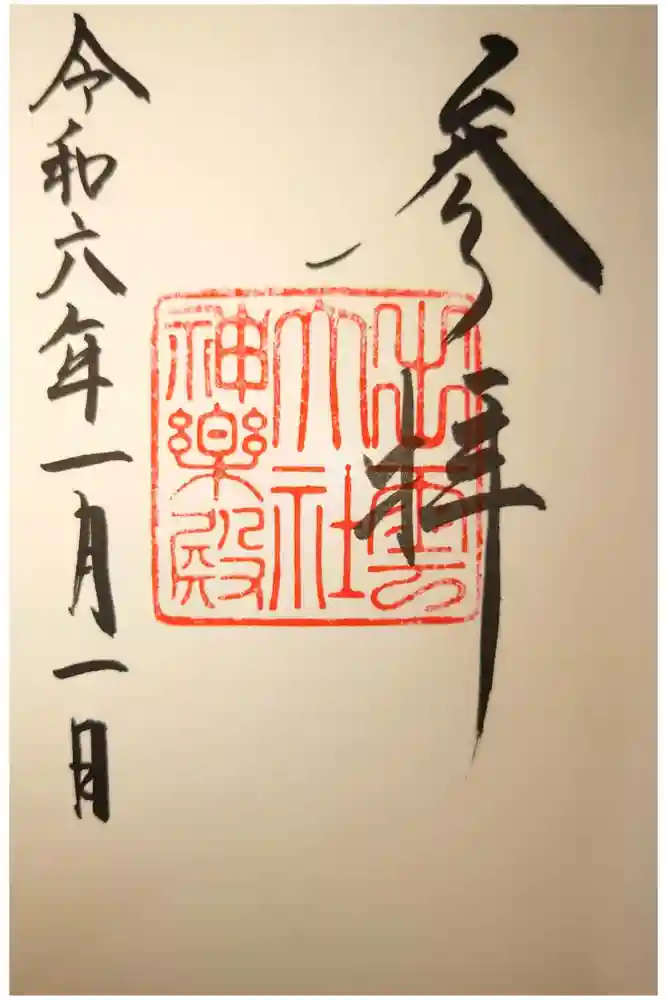 参拝
出雲
大社
神楽殿
令和六年一月一日